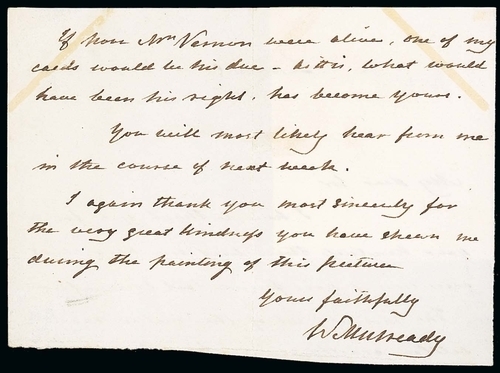 If poor Mr Vernon were alive, one of my
cards would be his due - as it is, what would
have been his right, has become yours.
You will most likely hear from me
in the course of next week.
I again thank you most sincerely for
the very great kindness you have shewn me
during the painting of this picture
Yours faithfully
W Mulready